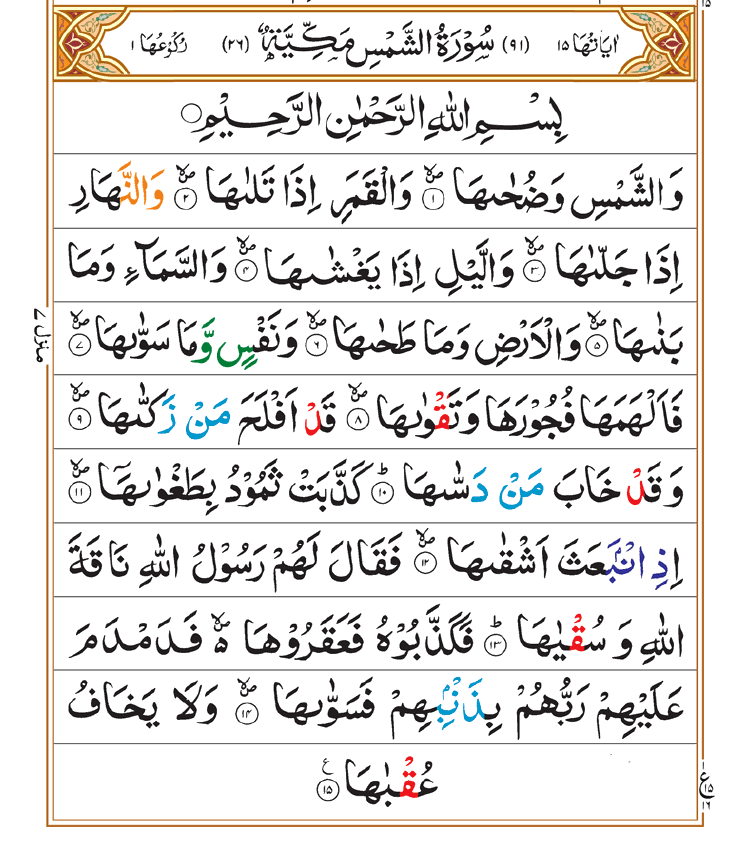 اٰیَاتُهَا ۱۵ (۹۱) سُوْرَةُ الشَّمْسِ مَكِّيَّةٌ (۲۶) رُكُوْعُهَا ۱
بِسْمِ اللهِ الرَّحْمٰنِ الرَّحِيْمِ
وَالشَّمْسِ وَضُحٰىهَا ۱ۙ وَالْقَمَرِ اِذَا تَلٰىهَا ۲ۙ وَالنَّهَارِ
اِذَا جَلّٰىهَا ۳ۙ وَالَّيْلِ اِذَا يَغْشٰىهَا ۴ۙ وَالسَّمَآءِ وَمَا
بَنٰىهَا ۵ۙ وَالْاَرْضِ وَمَا طَحٰىهَا ۶ۙ وَنَفْسٍ وَّمَا سَوّٰىهَا ۷ۙ
منزل ۷
فَاَلْهَمَهَا فُجُوْرَهَا وَتَقْوٰىهَا ۸ۙ قَدْ اَفْلَحَ مَنْ زَكّٰىهَا ۹ۙ
وَقَدْ خَابَ مَنْ دَسّٰىهَا ۱۰ؕ كَذَّبَتْ ثَمُوْدُ بِطَغْوٰىهَاۤ ۱۱ۙ
اِذِ انْۢبَعَثَ اَشْقٰىهَا ۱۲ۙ فَقَالَ لَهُمْ رَسُوْلُ اللهِ نَاقَةَ
اللهِ وَسُقْيٰهَا ۱۳ؕ فَكَذَّبُوْهُ فَعَقَرُوْهَا ۙ۬ فَدَمْدَمَ
عَلَيْهِمْ رَبُّهُمْ بِذَنْۢبِهِمْ فَسَوّٰىهَا ۱۴ۙ وَلَا يَخَافُ
عُقْبٰهَا ۱۵
ع ۱۵ ۱۶